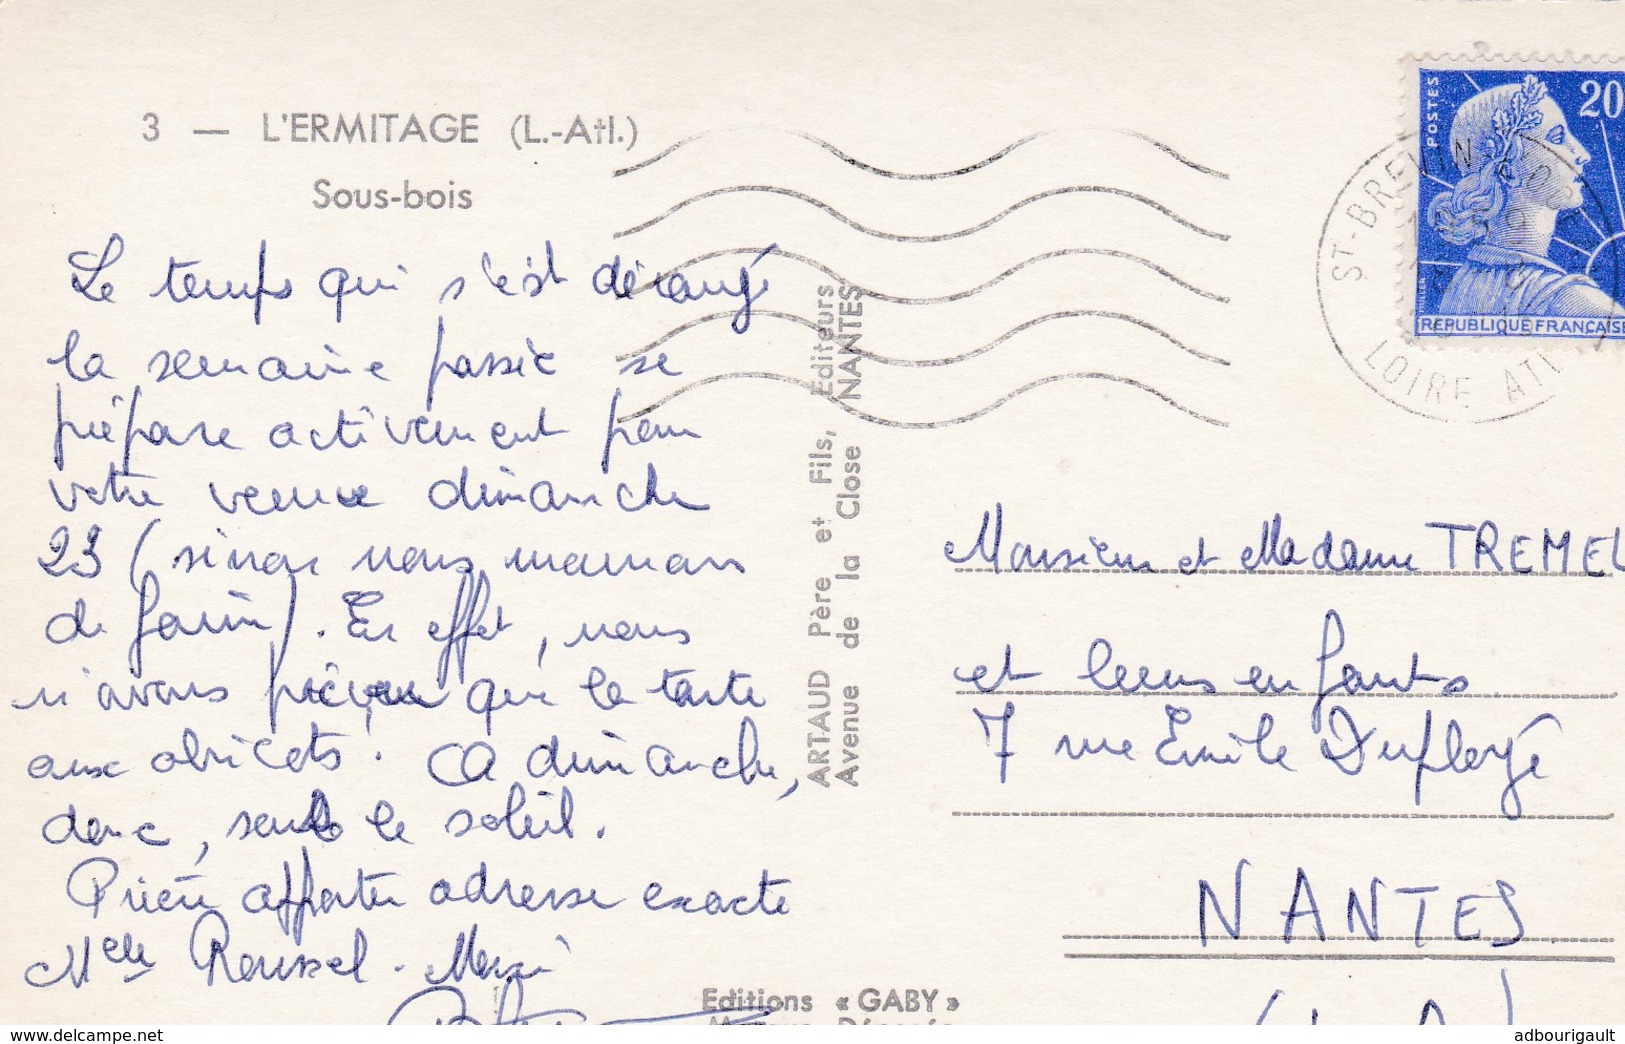 3 — L'ERMITAGE (L.-Atl.)
Sous-bois
Le temps qui s'est dérangé
la semaine passée se
prépare activement pour
votre venue dimanche
23 (sinon nous mourrons
de faim). En effet, nous
n'avons prévu que la tarte
aux abricots! A dimanche,
donc, sous le soleil.
Prière apporter adresse exacte
Melle Roussel. Merci
ARTAUD Père et Fils, Éditeurs
Avenue de la Close NANTES
Editions « GABY »
POSTES
20
MULLER
REPUBLIQUE FRANÇAISE
ST-BREVIN
LOIRE ATL
Monsieur et Madame TREMEL
et leurs enfants
7 rue Emile Duployé
NANTES
http://www.delcampe.net
adbourigault